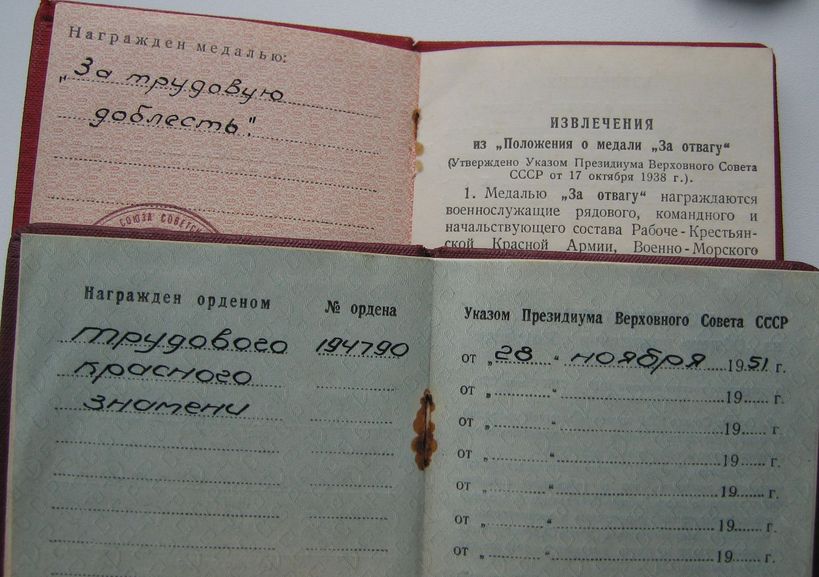 Награжден медалью:
„За трудовую
доблесть".
СОЮЗА СОВЕТСК
ИЗВЛЕЧЕНИЯ
из „Положения о медали „За отвагу"
(Утверждено Указом Президиума Верховного Совета
СССР от 17 октября 1938 г.).
1. Медалью „За отвагу" награждаются
военнослужащие рядового, командного и
начальствующего состава Рабоче-Крестьян-
ской Красной Армии, Военно-Морского
Награжден орденом № ордена
трудового 194790
красного
знамени
Указом Президиума Верховного Совета СССР
от „28 " ноября 1951 г.
от „ " 19 г.
от „ " 19 г.
от „ " 19 г.
от „ " 19 г.
от „ " 19 г.
от „ " 19 г.